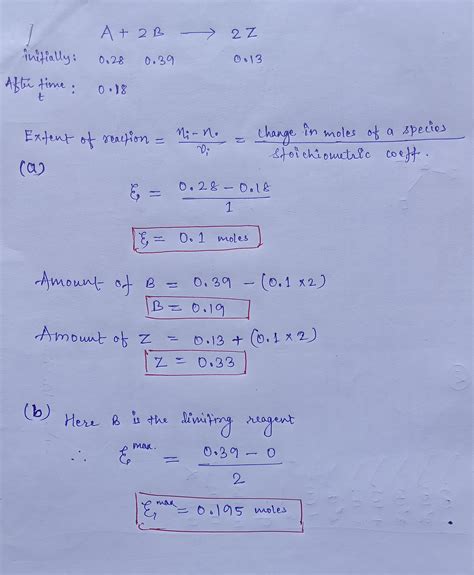 A + 2B → 2Z
initially: 0.28 0.39 0.13
After time t : 0.18
Extent of reaction = nᵢ - n₀ / νᵢ = change in moles of a species / stoichiometric coeff.
(a)
ξ = 0.28 - 0.18 / 1
ξ = 0.1 moles
Amount of B = 0.39 - (0.1 × 2)
B = 0.19
Amount of Z = 0.13 + (0.1 × 2)
Z = 0.33
(b) Here B is the limiting reagent
∴ ξ max. = 0.39 - 0 / 2
ξ max = 0.195 moles